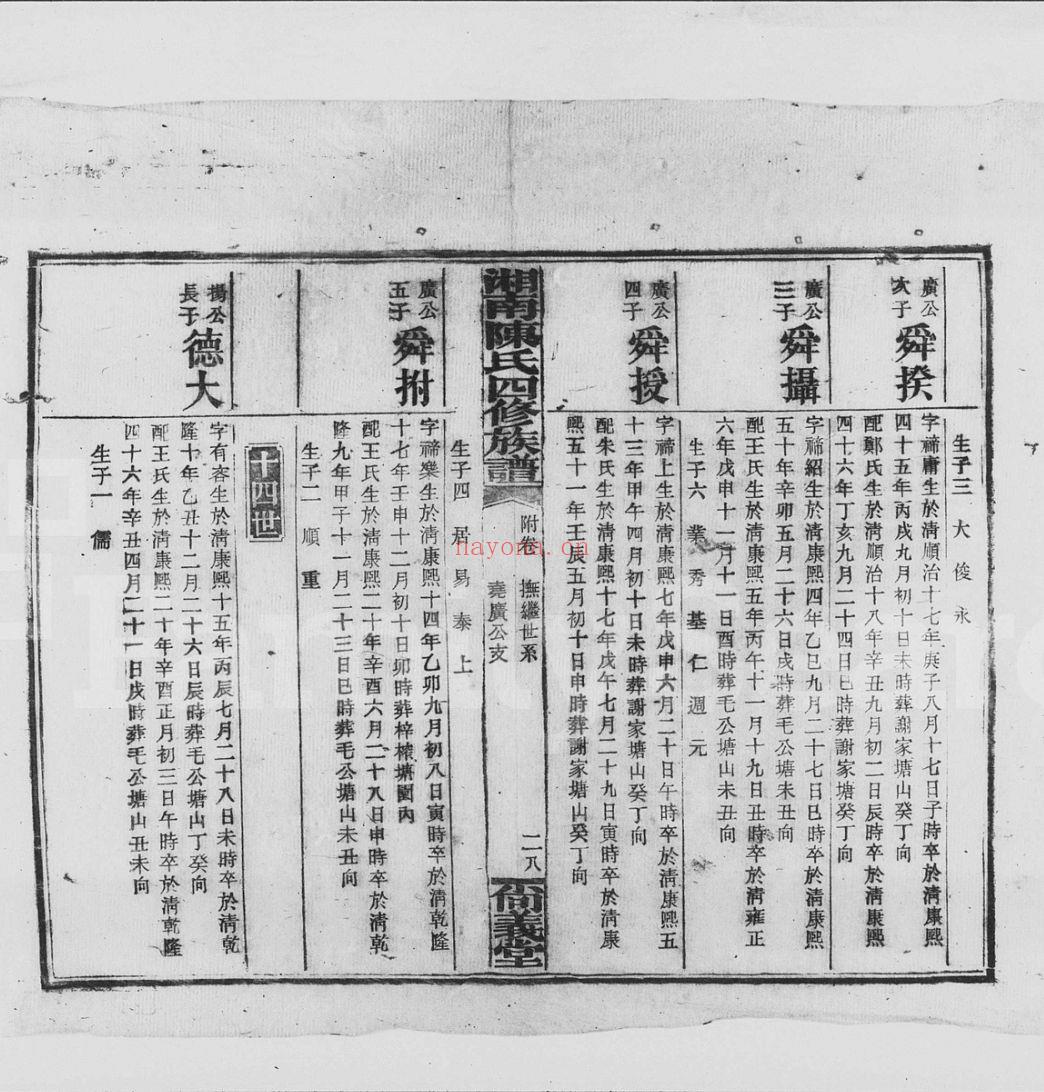 生子三　大　俊　永
廣公
次子
舜揆
字禘庸生於淸順治十七年庚子八月十七日子時卒於淸康熙
四十五年丙戌九月初十日未時葬謝家塘山癸丁向
配鄭氏生於淸順治十八年辛丑九月初二日辰時卒於淸康熙
四十六年丁亥九月二十四日巳時葬謝家塘癸丁向
廣公
三子
舜攝
字禘紹生於淸康熙四年乙巳九月二十七日巳時卒於淸康熙
五十年辛卯五月二十六日戌時葬毛公塘未丑向
配王氏生於淸康熙五年丙午十一月十九日丑時卒於淸雍正
六年戊申十二月十一日酉時葬毛公塘山未丑向
生子六　業　秀　基　仁　週　元
廣公
四子
舜授
字禘上生於淸康熙七年戊申六月二十日午時卒於淸康熙五
十三年甲午四月初十日未時葬謝家塘山癸丁向
配朱氏生於淸康熙十七年戊午七月二十九日寅時卒於淸康
熙五十一年壬辰五月初十日申時葬謝家塘山癸丁向
湘南陳氏四修族譜
附卷　撫繼世系
堯廣公支
二八
尙義堂
生子四　居　易　泰　上
廣公
五子
舜拊
字禘樂生於淸康熙十四年乙卯九月初八日寅時卒於淸乾隆
十七年壬申十二月初十日卯時葬梓檬塘園內
配王氏生於淸康熙二十年辛酉六月二十八日申時卒於淸乾
隆九年甲子十一月二十三日巳時葬毛公塘山未丑向
生子二　順　重
十四世
揚公
長子
德大
字有容生於淸康熙十五年丙辰七月二十八日未時卒於淸乾
隆十年乙丑十二月二十六日辰時葬毛公塘山丁癸向
配王氏生於淸康熙二十年辛酉正月初三日午時卒於淸乾隆
四十六年辛丑四月二十一日戌時葬毛公塘山丑未向
生子一　儒
hayona.cn